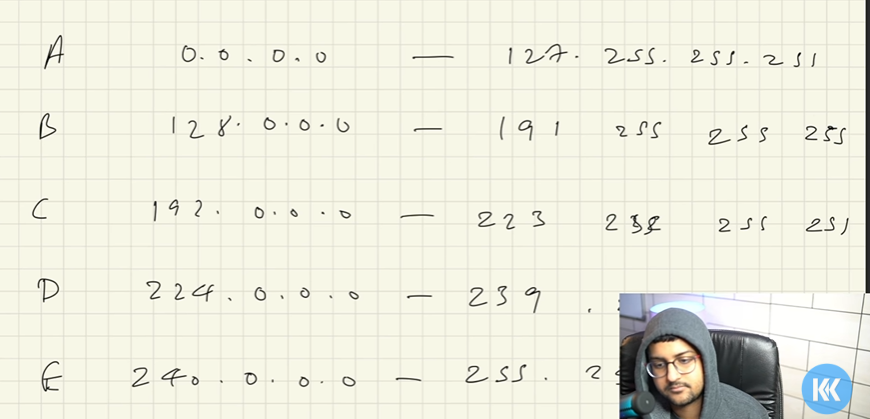 A 0.0.0.0 — 127.255.255.255
B 128.0.0.0 — 191 255 255 255
C 192.0.0.0 — 223 255 255
D 224.0.0.0 — 239 .
E 240.0.0.0 — 255. 2
K